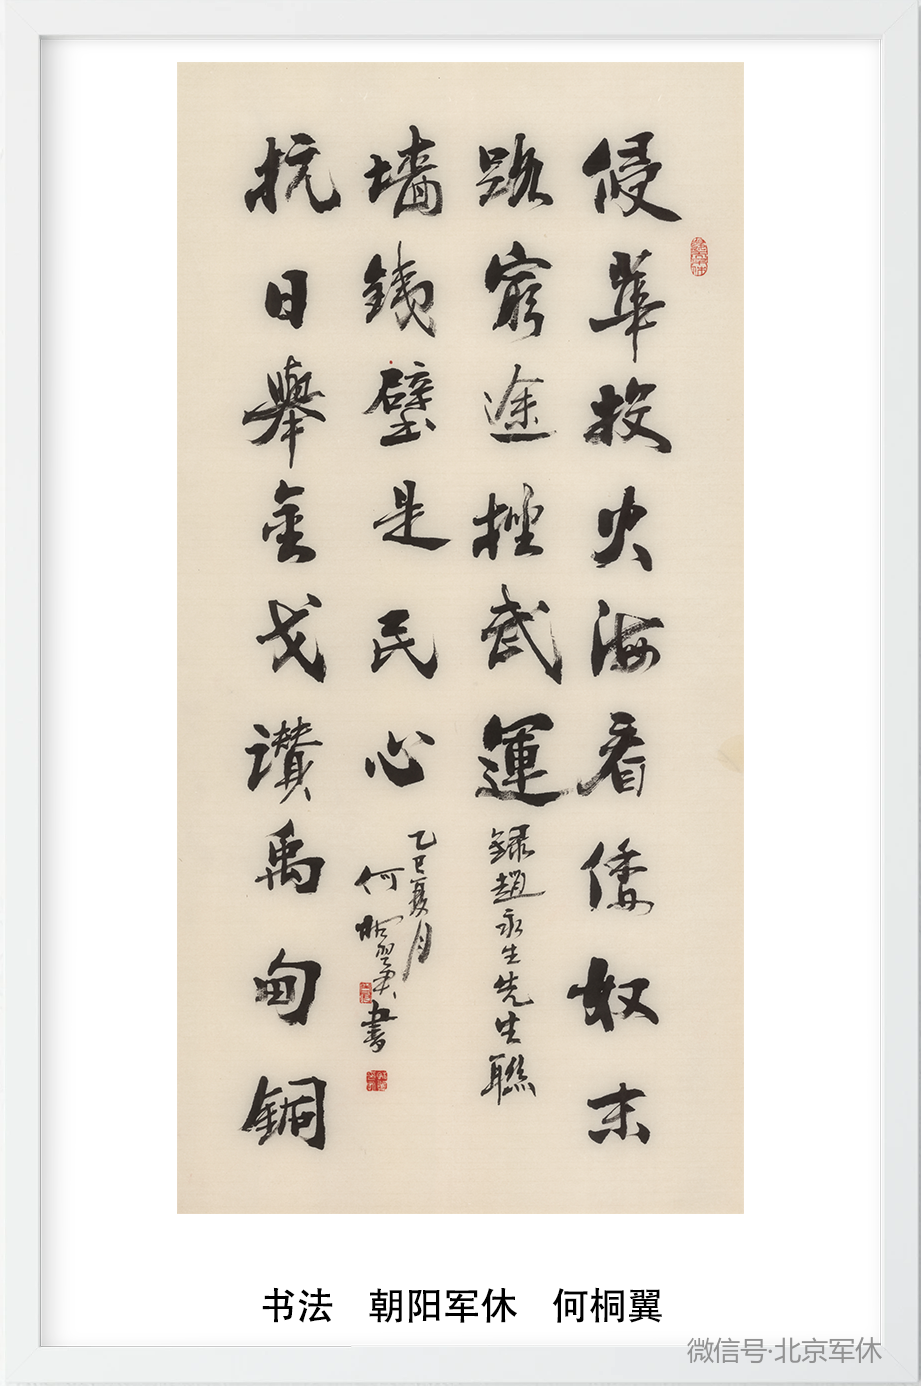 侵華投火海看倭奴末
路窮途挫武運
録趙永生先生聯
抗日舉金戈讚禹甸銅
墙銕壁是民心
乙巳夏月
何桐翼書
书法 朝阳军休 何桐翼
微信号·北京军休